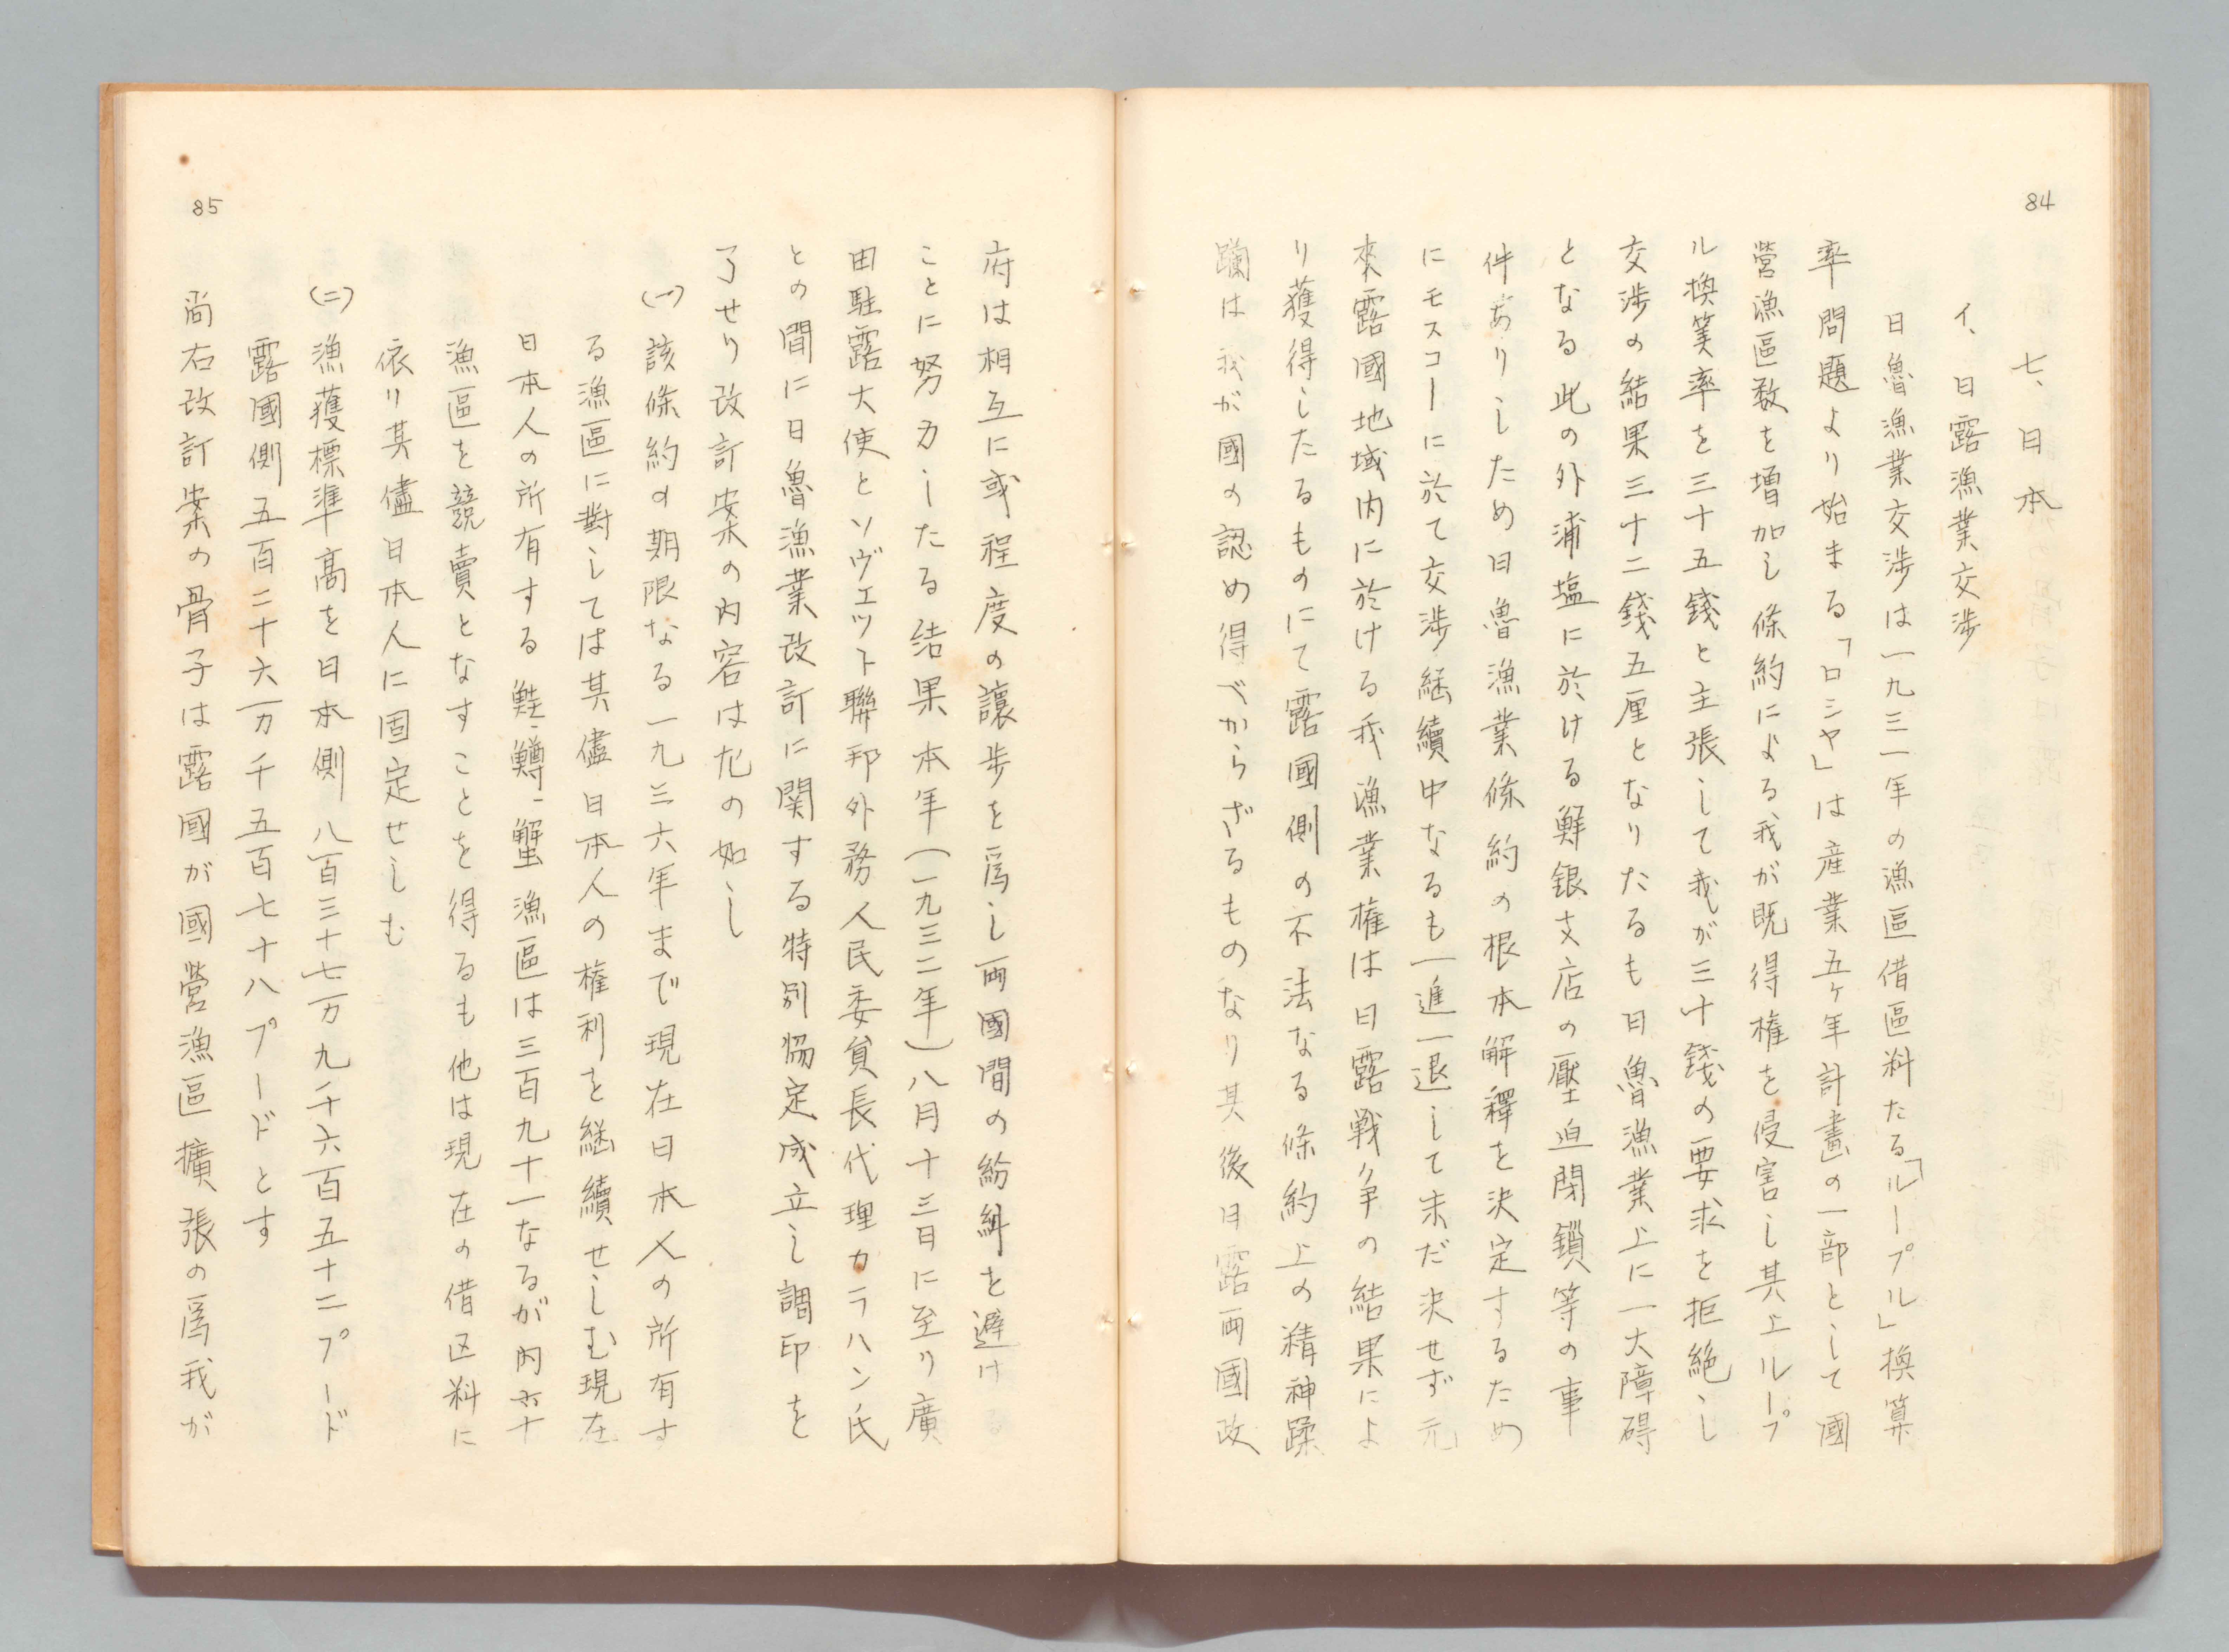 84
七、日本
イ、日露漁業交渉
日魯漁業交渉は一九三一年の漁區借區料たる「ルーブル」換算
率問題より始まる「ロシヤ」は産業五ヶ年計畫の一部として國
營漁區数を増加し條約による我が既得権を侵害し其上ルーブ
ル換算率を三十五錢と主張して我が三十錢の要求を拒絶し
交渉の結果三十二錢五厘となりたるも日魯漁業上に一大障碍
となる此の外浦塩に於ける鮮銀支店の壓迫閉鎖等の事
件ありしため日魯漁業條約の根本解釋を決定するため
にモスコーに於て交渉継續中なるも一進一退して未だ決せず元
來露國地域内に於ける我漁業権は日露戦争の結果によ
り獲得したるものにて露國側の不法なる條約上の精神蹂
躙は我が國の認め得べからざるものなり其後日露両國政
85
府は相互に或程度の讓歩を爲し両國間の紛糾を避ける
ことに努力したる結果本年(一九三二年)八月十三日に至り廣
田駐露大使とソヴエツト聯邦外務人民委員長代理カラハン氏
との間に日魯漁業改訂に関する特別協定成立し調印を
了せり改訂案の内容は尤の如し
(一)該條約の期限なる一九三六年まで現在日本人の所有す
る漁區に對しては其儘日本人の権利を継續せしむ現在
日本人の所有する鮭鱒、蟹漁區は三百九十一なるが内六十
漁區を競賣となすことを得るも他は現在の借区料に
依り其儘日本人に固定せしむ
(二)漁獲標準高を日本側八百三十七万九千六百五十二プード
露國側五百二十六万千五百七十八プードとす
尚右改訂案の骨子は露國が國營漁區擴張の爲我が